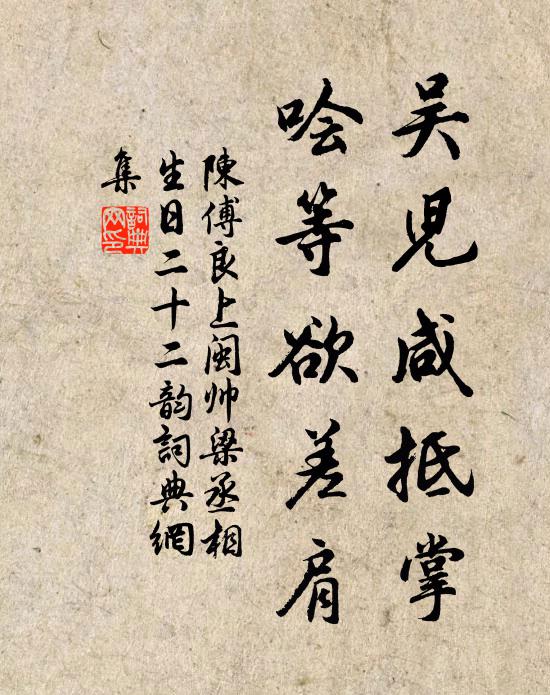 吴児咸抵掌
哙等欲差肩
陳傅良上閩帅梁丞相
生日二十二韵詞典網
集
詞典
网印